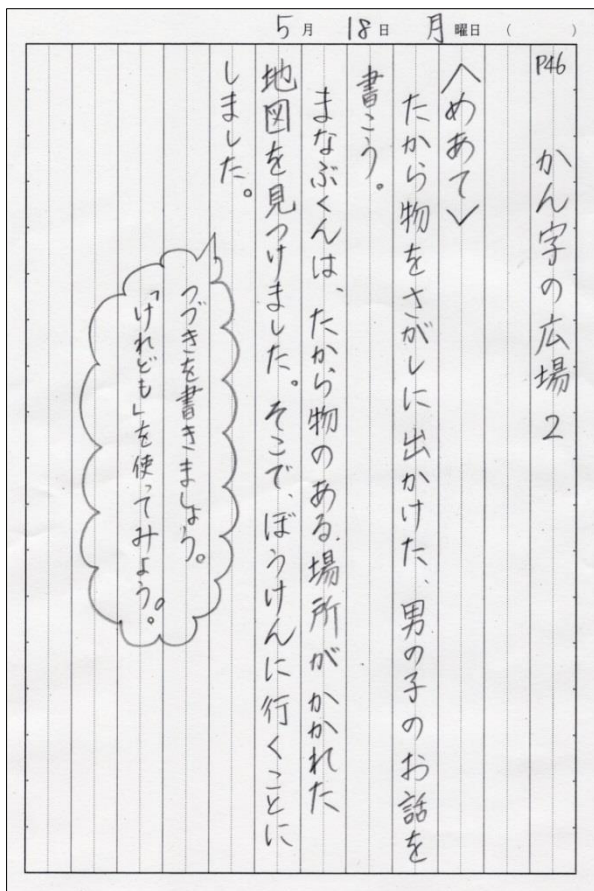 5月 18日 月曜日 ( )
P46 かん字の広場 2
〈めあて〉
たから物をさがしに出かけた、男の子のお話を
書こう。
まなぶくんは、たから物のある場所がかかれた
地図を見つけました。そこで、ぼうけんに行くことに
しました。
つづきを書きましょう。
「けれども」を使ってみよう。